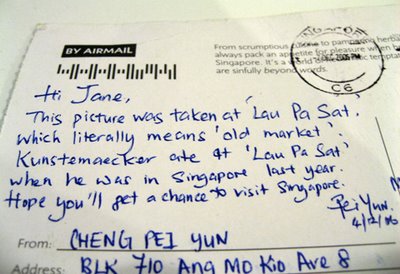 BY AIRMAIL
From scrumptious cuisine to pampering herbal
always pack an appetite for pleasure when
Singapore. It's a
are sinfully beyond words.
C6
Hi Jane,
This picture was taken at 'Lau Pa Sat',
which literally means 'old market'.
Kunstemaecker ate at 'Lau Pa Sat'
when he was in Singapore last year.
Hope you'll get a chance to visit Singapore.
Pei Yun.
4/2/06
From: CHENG PEI YUN
Address: BLK 710 Ang Mo Kio Ave 8